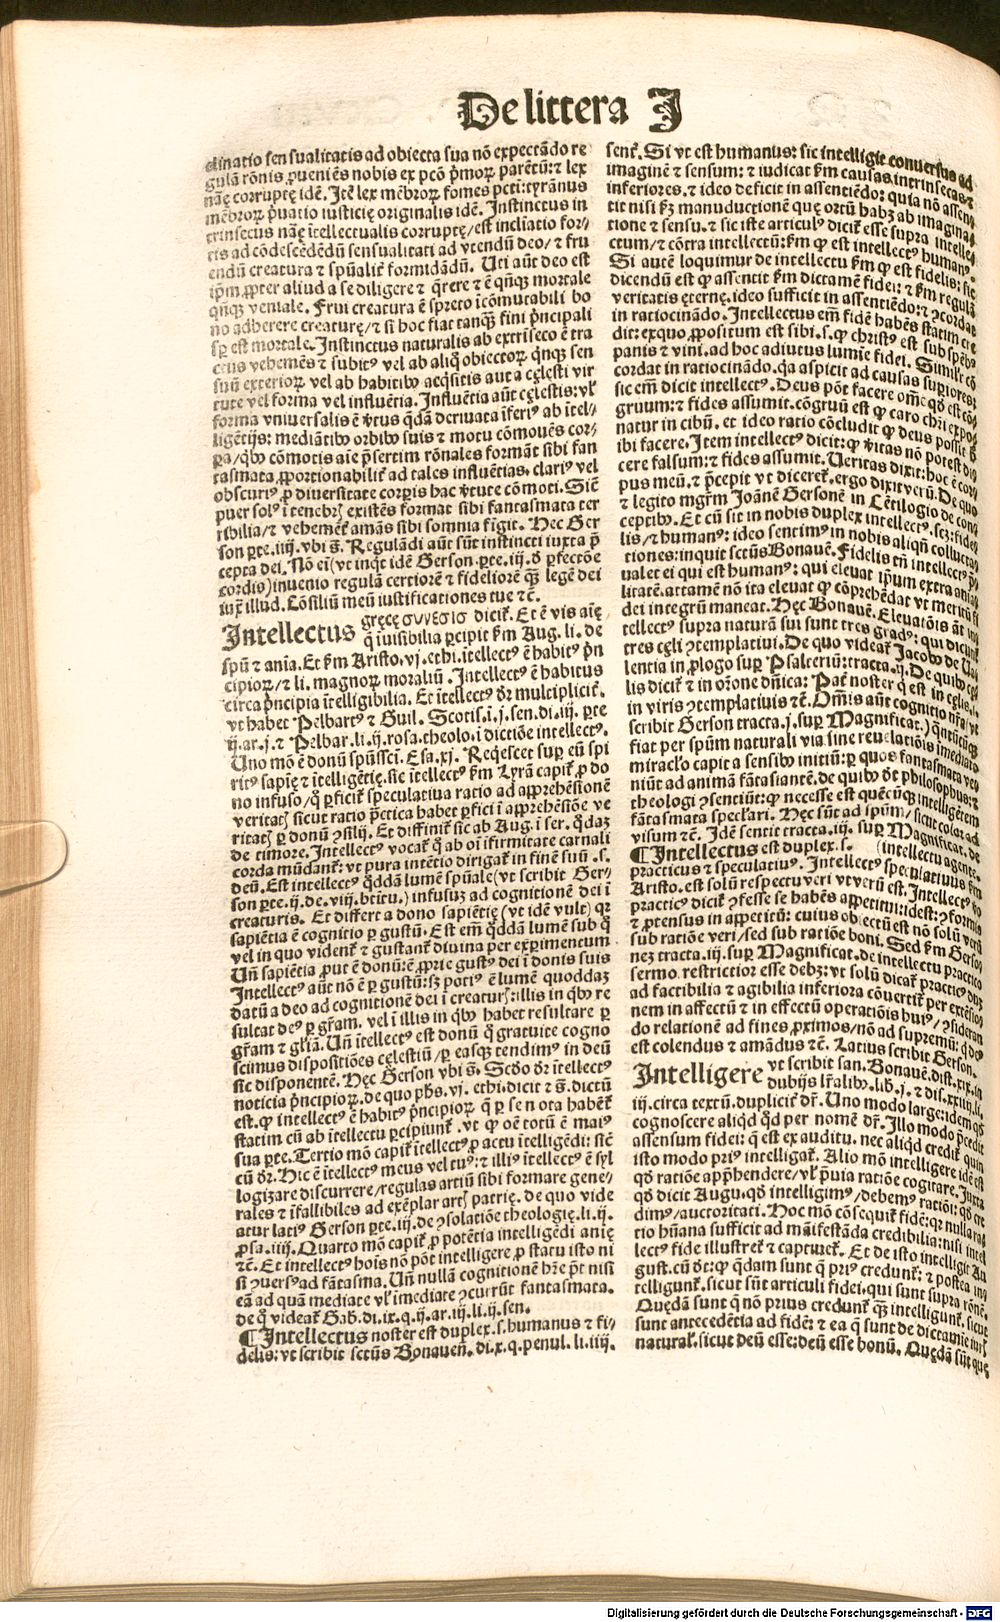 De littera J
clinatio sensualitatis ad obiecta sua nõ expectãdo re
gulã rõnis ꝓueniẽs nobis ex pcõ pͥmoꝝ parẽtũ: ⁊ lex
naͤ corruptę idẽ. Itẽ lex mẽbroꝝ fomes pcti: tyrãnus
mẽbroꝝ pͥuatio iusticię originalis idẽ. Instinctus in
trinsecus naͤ ĩtellectualis corruptę/est incliatio for⸗
tis ad cõdescẽdẽdũ sensualitati ad vtendũ deo/ ⁊ fru
endũ creatura ⁊ spũalit̃ formidãdũ. Uti aũt deo est
ip̃m ꝓpter aliud a se diligere ⁊ q̃rere ⁊ ẽ qñqꝫ mortale
qñqꝫ veniale. Frui creatura ẽ spreto ĩcõmutabili bo
no adherere creaturę/⁊ si hoc fiat tanqꝫ̃ fini pͥncipali
sꝑ est mortale. Instinctus naturalis ab extriseco ẽ tra
ctus vehemẽs ⁊ subitꝰ vel ab aliqͦ obiectoꝝ qͥnqꝫ sen
suũ exterioꝝ vel ab habitibꝰ acqͥsitis aut a cęlesti vir
tute vel forma vel influẽtia. Influẽtia aũt cęlestis: vl̓
forma vniuersalis ẽ vͥtus qͣdã deriuata ĩferiꝰ ab ĩtel⸗
ligẽtijs: mediãtibꝰ orbibꝰ suis ⁊ motu cõmouẽs cor⸗
ꝑa/qͥbꝰ cõmotis aĩe pͥsertim rõnales formãt sibi fan
tasmata ꝓportionabilit̃ ad tales influẽtias. clariꝰ vel
obscuriꝰ ꝓ diuersitate corꝑis hac vͥtute cõmoti. Sicͭ
puer solꝰ ĩ tenebrꝭ existẽs format sibi fantasmata ter
ribilia/⁊ vehemẽt̃ amãs sibi somnia fĩgit. Hec Ger
son ꝑte. iiij. vbi s̃. Regulãdi aũt sũt instincti iuxta pͥ
cepta dei. Nõ eĩ (vt inqͥt idẽ Gerson. ꝑte. iij. d̓ ꝑfectõe
cordis) inuenio regulã certiorẽ ⁊ fideliorẽ qꝫ̃ legẽ dei
iuxͣ illud. Cõsiliũ meũ iustificationes tue ⁊c̃.
Intellectus gręcę σύνεσις dicit̃. Et ẽ vis aĩę
q̃ iuisibilia ꝑcipit ẽm Aug. li. de
spũ ⁊ aĩa. Et ẽm Aristo. vj. ethi. ĩtellectꝰ ẽ habitꝰ pͥn
cipioꝝ/⁊ li. magnoꝝ moraliũ. Intellectꝰ ẽ habitus
circa pͥncipia ĩtelligibilia. Et ĩtellectꝰ dr̃ multiplicit̃.
vt habet Pelbartꝰ ⁊ Guil. Scotis. i. j. sen. di. iij. ꝑte
ij. ar. j. ⁊ Pelbar. li. ij. rosa. theolo. ĩ dictiõe intellectꝰ.
Uno mõ ẽ donũ spũssci. Esa. xj. Reqͥescet suꝑ eũ spi
ritꝰ sapię ⁊ ĩtelligẽtię. sic ĩtellectꝰ ẽm Lyrã capit̃ ꝓ do
no infuso/qͦ ꝑficit̃ speculatiua ratio ad apꝓhẽsionẽ
veritatꝭ sicut ratio pͣctica habet ꝑfici ĩ apꝓhẽsiõe ve
ritatꝭ ꝑ donũ ꝯsilij. Et diffinit̃ sic ab Aug. ĩ ser. qͦdaꝫ
de timore. Intellectꝰ vocat̃ qͦ ab oĩ ĩfirmitate carnali
corda mũdant̃: vt pura intẽtio dirigat̃ in finẽ suũ .s.
deũ. Est intellectꝰ qͦddã lumẽ spũale (vt scribit Ger⸗
son ꝑte. ij. de. viij. btitu.) infusuꝫ ad cognitionẽ dei ĩ
creaturis. Et differt a dono sapiẽtię (vt idẽ vult) qꝛ
sapiẽtia ẽ cognitio ꝑ gustũ. Est em̃ qͦddã lumẽ sub qͦ
vel in quo vident̃ ⁊ gustant̃ diuina per experimentum
Uñ sapiẽtia ꝓut ẽ donũ: ẽ ꝓprie gustꝰ dei ĩ donis suis
Intellectꝰ aũt nõ ẽ ꝑ gustũ: sꝫ potiꝰ ẽ lumẽ quoddaꝫ
datũ a deo ad cognitionẽ dei ĩ creaturꝭ: illis in qͥbꝰ re
sultat deꝰ ꝑ gr̃am. vel ĩ illis in qͥbꝰ habet resultare ꝑ
gr̃am ⁊ gl̃iã. Uñ ĩtellectꝰ est donũ qͦ gratuite cogno
scimus dispositiões cęlestiũ/ꝑ easqꝫ tendimꝰ in deũ
sic disponentẽ. Hęc Gerson vbi s̃. Scďo dr̃ ĩtellectꝰ
noticia pͥncipioꝝ. de quo phs. vj. ethi. dicit ⁊ s̃. dictũ
est. ꝙ intellectꝰ ẽ habitꝰ pͥncipioꝝ q̃ ꝑ se nota habẽt̃
statim cũ ab ĩtellectu ꝑcipiunt̃. vt ꝙ oẽ totũ ẽ maiꝰ
sua ꝑte. Tertio mõ capit̃ ĩtellectꝰ ꝓ actu ĩtelligẽdi: sicͭ
cũ dr̃. Hic ẽ ĩtellectꝰ meus vel tuꝰ: ⁊ illiꝰ ĩtellectꝰ ẽ syl
logizare discurrere/regulas artiũ sibi formare gene⸗
rales ⁊ ĩfallibiles ad exẽplar artꝭ patrię. de quo vide
atur latiꝰ Gerson ꝑte. iij. de ꝯsolatiõe theologię. li. ij.
ꝓsa. iiij. Quarto mõ capit̃ ꝓ potẽtia intelligẽdi anię
⁊c̃. Et intellectꝰ hoĩs nõ põt intelligere ꝓ statu isto ni
si ꝯuersꝰ ad fãtasma. Uñ nullã cognitionẽ hr̃e põt nisi
eã ad quã mediate vl̓ ĩmediate ꝯcurrũt fantasmata.
de qͦ videat̃ Gab. di. ix. q. ij. ar. iij. li. ij. sen.
¶ Intellectus noster est duplex. s. humanus ⁊ fi⸗
delis: vt scribit sctũs Bonauen̄. di. x. q. penul. li. iiij.
sent̃. Si vt est humanus: sic intelligit conuersus ad
imaginẽ ⁊ sensum: ⁊ iudicat ẽm causas intrinsecas ⁊
inferiores. ⁊ ideo deficit in assentiẽdo: quia nõ assen
tit nisi ẽꝫ manuductionẽ que ortũ habꝫ ab imagina
tione ⁊ sensu. ⁊ sic iste articulꝰ dicit̃ esse supra intelle
ctum/⁊ cõtra intellectũ: ẽm ꝙ est intellectꝰ humanꝰ.
Si autẽ loquimur de intellectu ẽm ꝙ est fidelis: sic
dicendũ est ꝙ assentit ẽm dictamẽ fidei: ⁊ ẽm regulã
veritatis ęternę. ideo sufficit in assentiẽdo: ⁊ ꝯcordat
in ratiocinãdo. Intellectus em̃ fidẽ habẽs statim cre
dit: exquo ꝓpositum est sibi .s. ꝙ christꝰ est sub spẽbꝰ
panis ⁊ vini. ad hoc adiutus lumĩe fidei. Similit̃ cõ
cordat in ratiocinãdo. qͣ aspicit ad causas supͥores:
sic em̃ dicit intellectꝰ. Deus põt facere om̃e qď est cõ
gruum: ⁊ fides assumit. cõgruũ est ꝙ caro chr̃i expo
natur in cibũ. et ideo ratio cõcludit ꝙ deus possit
ibi facere. Item intellectꝰ dicit: ꝙ vͥitas nõ potest di
cere falsum: ⁊ fides assumit. Ueritas dixit: hoc ẽ cor
pus meũ. ⁊ pͥcepit vt diceret̃. ergo dixit verũ. De quo
⁊ legito mgr̃m Joãnẽ Gersonẽ in Cẽtilogio de con
ceptibꝰ. Et cũ sit in nobis duplex intellectꝰ. scꝫ: fide
lis/⁊ humanꝰ: ideo sentimꝰ in nobis aliqñ colluctatio
tiones: inquit sctũs Bonauẽ. Fidelis tñ intellectꝰ pͥ
ualet ei qui est humanꝰ: qui eleuat ip̃um extra anima
litatẽ. attamen nõ ita eleuat ꝙ cõprehẽdat vt meritũ fi
dei integrũ maneat. Hęc Bonauẽ. Eleuatõis aũt in
tellectꝰ supra naturã sui sunt tres gradꝰ: qui dicunt̃
tres cęli ꝯtemplatiui. De quo videat̃ Jacobo de Ua
lentia in ꝓlogo suꝑ Psalteriũ: tracta. ij. De quibꝰ cęl
lis dicit̃ ⁊ in or̃one dñica: Pat̃ noster qͥ est in cęlis. i.
in viris ꝯtemplatiuis ⁊c̃. Om̃is aũt cognitio nr̃a (vt
scribit Gerson tracta. j. suꝑ Magnificat.) qñtũcũqꝫ
fiat per spũm naturali via sine reuelatiõis immediato
miracl̓o capit a sensibꝰ initiũ: ꝑ quos fantasmata ve
niũt ad animã fãtasiantẽ. de quibꝰ dr̃ philosophus: ⁊
theologi ꝯsentiũt: ꝙ necesse est quẽcũqꝫ intelligẽtem
fãtasmata specl̓ari. Hęc sũt ad spũm/ sicut color ad
visum ⁊c̃. Idẽ sentit tracta. iij. suꝑ Magnificat. de
¶ Intellectus est duplex .s. (intellectu agente.
practicus ⁊ speculatiuꝰ. Intellectꝰ speculatiuus ẽm
Aristo. est solũ respectu veri vt verũ est. Intellectꝰ vo
practicꝰ dicit̃ ꝯfesse se habẽs appetitui: idest: ꝯformio
⁊ ꝓtensus in appetitũ: cuius obiectũ est nõ solũ verũ
sub ratiõe veri/sed sub ratiõe boni. Sed ẽm Gerso
neꝫ tracta. iij. suꝑ Magnificat. de intellectu practico
sermo. restrictior esse debꝫ: vt solũ dicat̃ practicꝰ dũꝫ
ad factibilia ⁊ agibilia inferiora cõuertit̃ per extẽsio
nem in affectũ ⁊ in effectũ operatiõis huiꝰ/ꝯsideran
do relationẽ ad fines ꝓximos/nõ ad supremũ: qͥ deꝰ
est colendus ⁊ amãdus ⁊c̃. Latius scribit Gerson.
Intelligere vt scribit san. Bonauẽ. dist. xix. in
dubijs lr̃alibꝰ. lib. j. ⁊ dis. xxiiij. li.
iij. circa textũ. duplicit̃ dr̃. Uno modo large: idem qď
cognoscere aliqͥd qď per nomẽ dr̃. Illo modo pͥcedit
assensum fidei: q̃ est ex auditu. nec aliqͥd credit̃ quin
isto modo priꝰ intelligat̃. Alio mõ intelligere idẽ est
qď ratiõe apꝓhendere/vl̓ pͥuia ratiõe cogitare. Juxta
qď dicit Augu. qď intelligimꝰ/debemꝰ rationi: qď cre
dimꝰ/auctoritati. Hoc mõ cõsequit̃ fidẽ: qꝛ nulla ra
tio hũana sufficit ad mãifestãda credibilia: nisi intel
lectꝰ fide illustret̃ ⁊ captiuet̃. Et de isto intelligit Au
gust. cũ dr̃: ꝙ qͣdam sunt q̃ priꝰ credunt̃: ⁊ postea in
telligunt̃. sicut sũt articuli fidei. qui sunt supra rõnẽ.
Quędã sunt q̃ nõ prius credunt̃ qꝫ̃ intelligunt̃. sicut
sunt antecedẽtia ad fidẽ: ⁊ ea q̃ sunt de dictamĩe iuris
natural. sicut deũ esse: deũ esse bonũ. Quędã sũt que
Digitalisierung gefördert durch die Deutsche Forschungsgemeinschaft - DFG